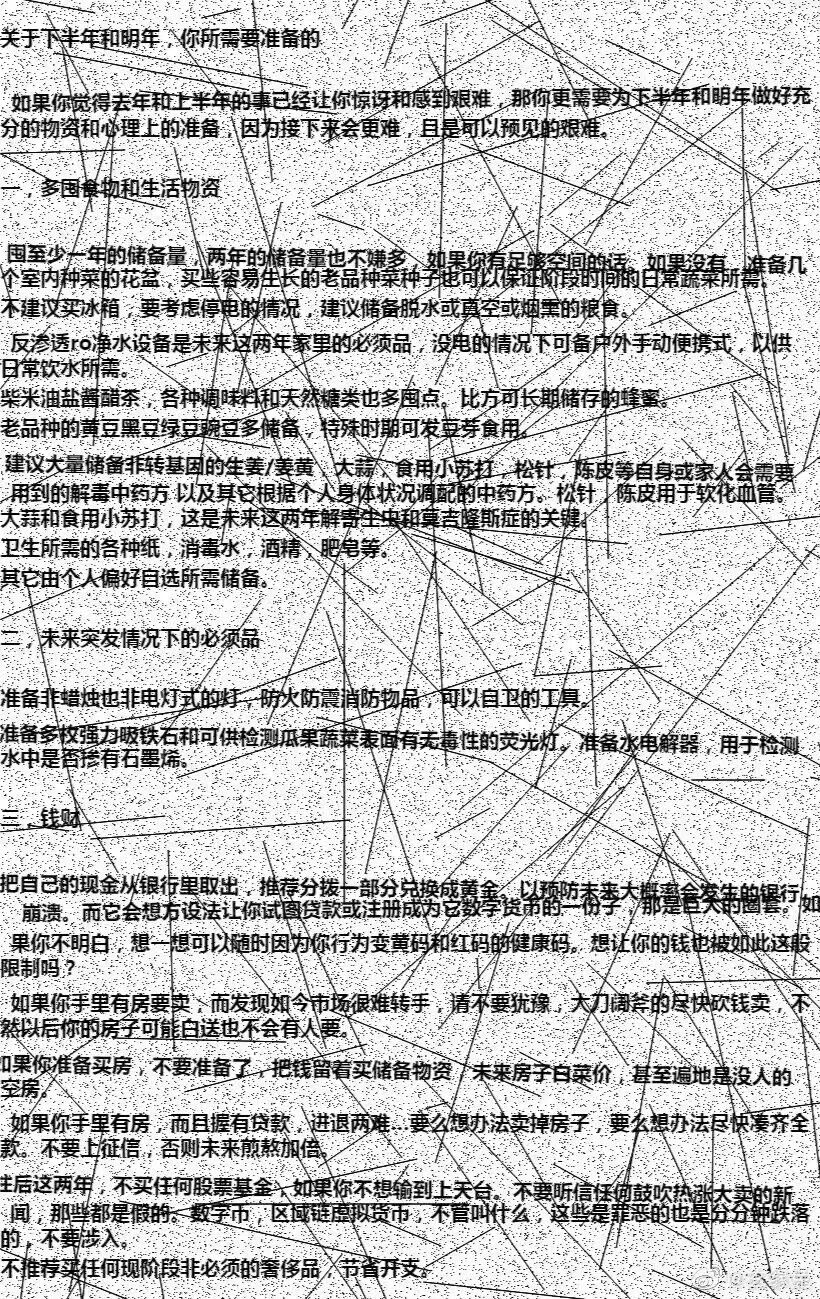 关于下半年和明年，你所需要准备的
如果你觉得去年和上半年的事已经让你惊讶和感到艰难，那你更需要为下半年和明年做好充
分的物资和心理上的准备，因为接下来会更难，且是可以预见的艰难。
一，多囤食物和生活物资
囤至少一年的储备量，两年的储备量也不嫌多，如果你有足够空间的话。如果没有，准备几
个室内种菜的花盆，买些容易生长的老品种菜种子也可以保证阶段时间的日常蔬菜所需。
不建议买冰箱，要考虑停电的情况，建议储备脱水或真空或烟熏的粮食。
反渗透ro净水设备是未来这两年家里的必须品，没电的情况下可备户外手动便携式，以供
日常饮水所需。
柴米油盐酱醋茶，各种调味料和天然糖类也多囤点。比方可长期储存的蜂蜜。
老品种的黄豆黑豆绿豆豌豆多储备，特殊时期可发豆芽食用。
建议大量储备非转基因的生姜/姜黄，大蒜，食用小苏打，松针，陈皮等自身或家人会需要
用到的解毒中药方 以及其它根据个人身体状况调配的中药方。松针，陈皮用于软化血管。
大蒜和食用小苏打，这是未来这两年解寄生虫和莫吉隆斯症的关键。
卫生所需的各种纸，消毒水，酒精，肥皂等。
其它由个人偏好自选所需储备。
二，未来突发情况下的必须品
准备非蜡烛也非电灯式的灯，防火防震消防物品，可以自卫的工具。
准备多枚强力吸铁石和可供检测瓜果蔬菜表面有无毒性的荧光灯。准备水电解器，用于检测
水中是否掺有石墨烯。
三，钱财
把自己的现金从银行里取出，推荐分拨一部分兑换成黄金。以预防未来大概率会发生的银行
崩溃。而它会想方设法让你试图贷款或注册成为它数字货币的一份子，那是巨大的圈套。如
果你不明白，想一想可以随时因为你行为变黄码和红码的健康码。想让你的钱也被如此这般
限制吗？
如果你手里有房要卖，而发现如今市场很难转手，请不要犹豫，大刀阔斧的尽快砍钱卖，不
然以后你的房子可能白送也不会有人要。
如果你准备买房，不要准备了，把钱留着买储备物资，未来房子白菜价，甚至遍地是没人的
空房。
如果你手里有房，而且握有贷款，进退两难...要么想办法卖掉房子，要么想办法尽快凑齐全
款。不要上征信，否则未来煎熬加倍。
往后这两年，不买任何股票基金，如果你不想输到上天台。不要听信任何鼓吹热涨大卖的新
闻，那些都是假的。数字币，区域链虚拟货币，不管叫什么，这些是罪恶的也是分分钟跌落
的，不要涉入。
不推荐买任何现阶段非必须的奢侈品，节省开支。